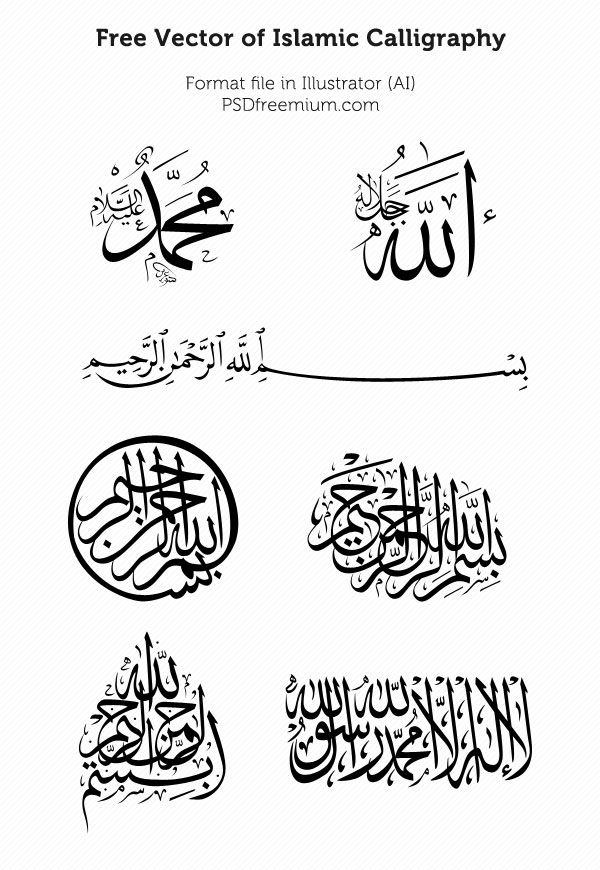 Free Vector of Islamic Calligraphy
Format file in Illustrator (AI)
PSDfreemium.com
محمد عليه السلام
الله جل جلاله
بِسْمِ ٱللَّهِ ٱلرَّحْمَٰنِ ٱلرَّحِيمِ
بسم الله الرحمن الرحيم
بسم الله الرحمن الرحيم
بسم الله الرحمن الرحيم
لا إله إلا الله محمد رسول الله